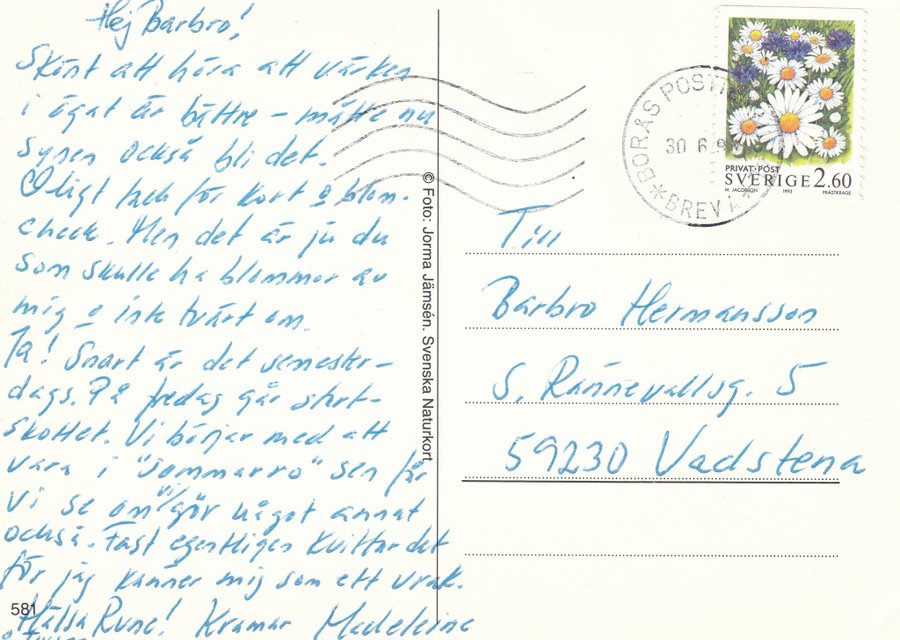 Hej Barbro!
Skönt att höra att värken
i ögat är bättre – måtte nu
synen också bli det.
Oligt tack för kort o blom-
check. Men det är ju du
som skulle ha blommor av
mig o inte tvärt om.
Ja! Snart är det semester-
dags. På fredag går start-
skottet. Vi börjar med att
vara i "Sommarro" sen får
vi se om vi gör något annat
också. Fast egentligen kvittar det
för jag känner mig som ett vrak.
Hälsa Rune! Kramar Madeleine
581
© Foto: Jorma Jämsén. Svenska Naturkort
BORÅS POSTT
30 6 9
BREV
PRIVAT·POST
SVERIGE 2.60
M. JACOBSON 1993 PRÄSTKRAGE
Till
Barbro Hermansson
S. Rännevallsg. 5
59230 Vadstena